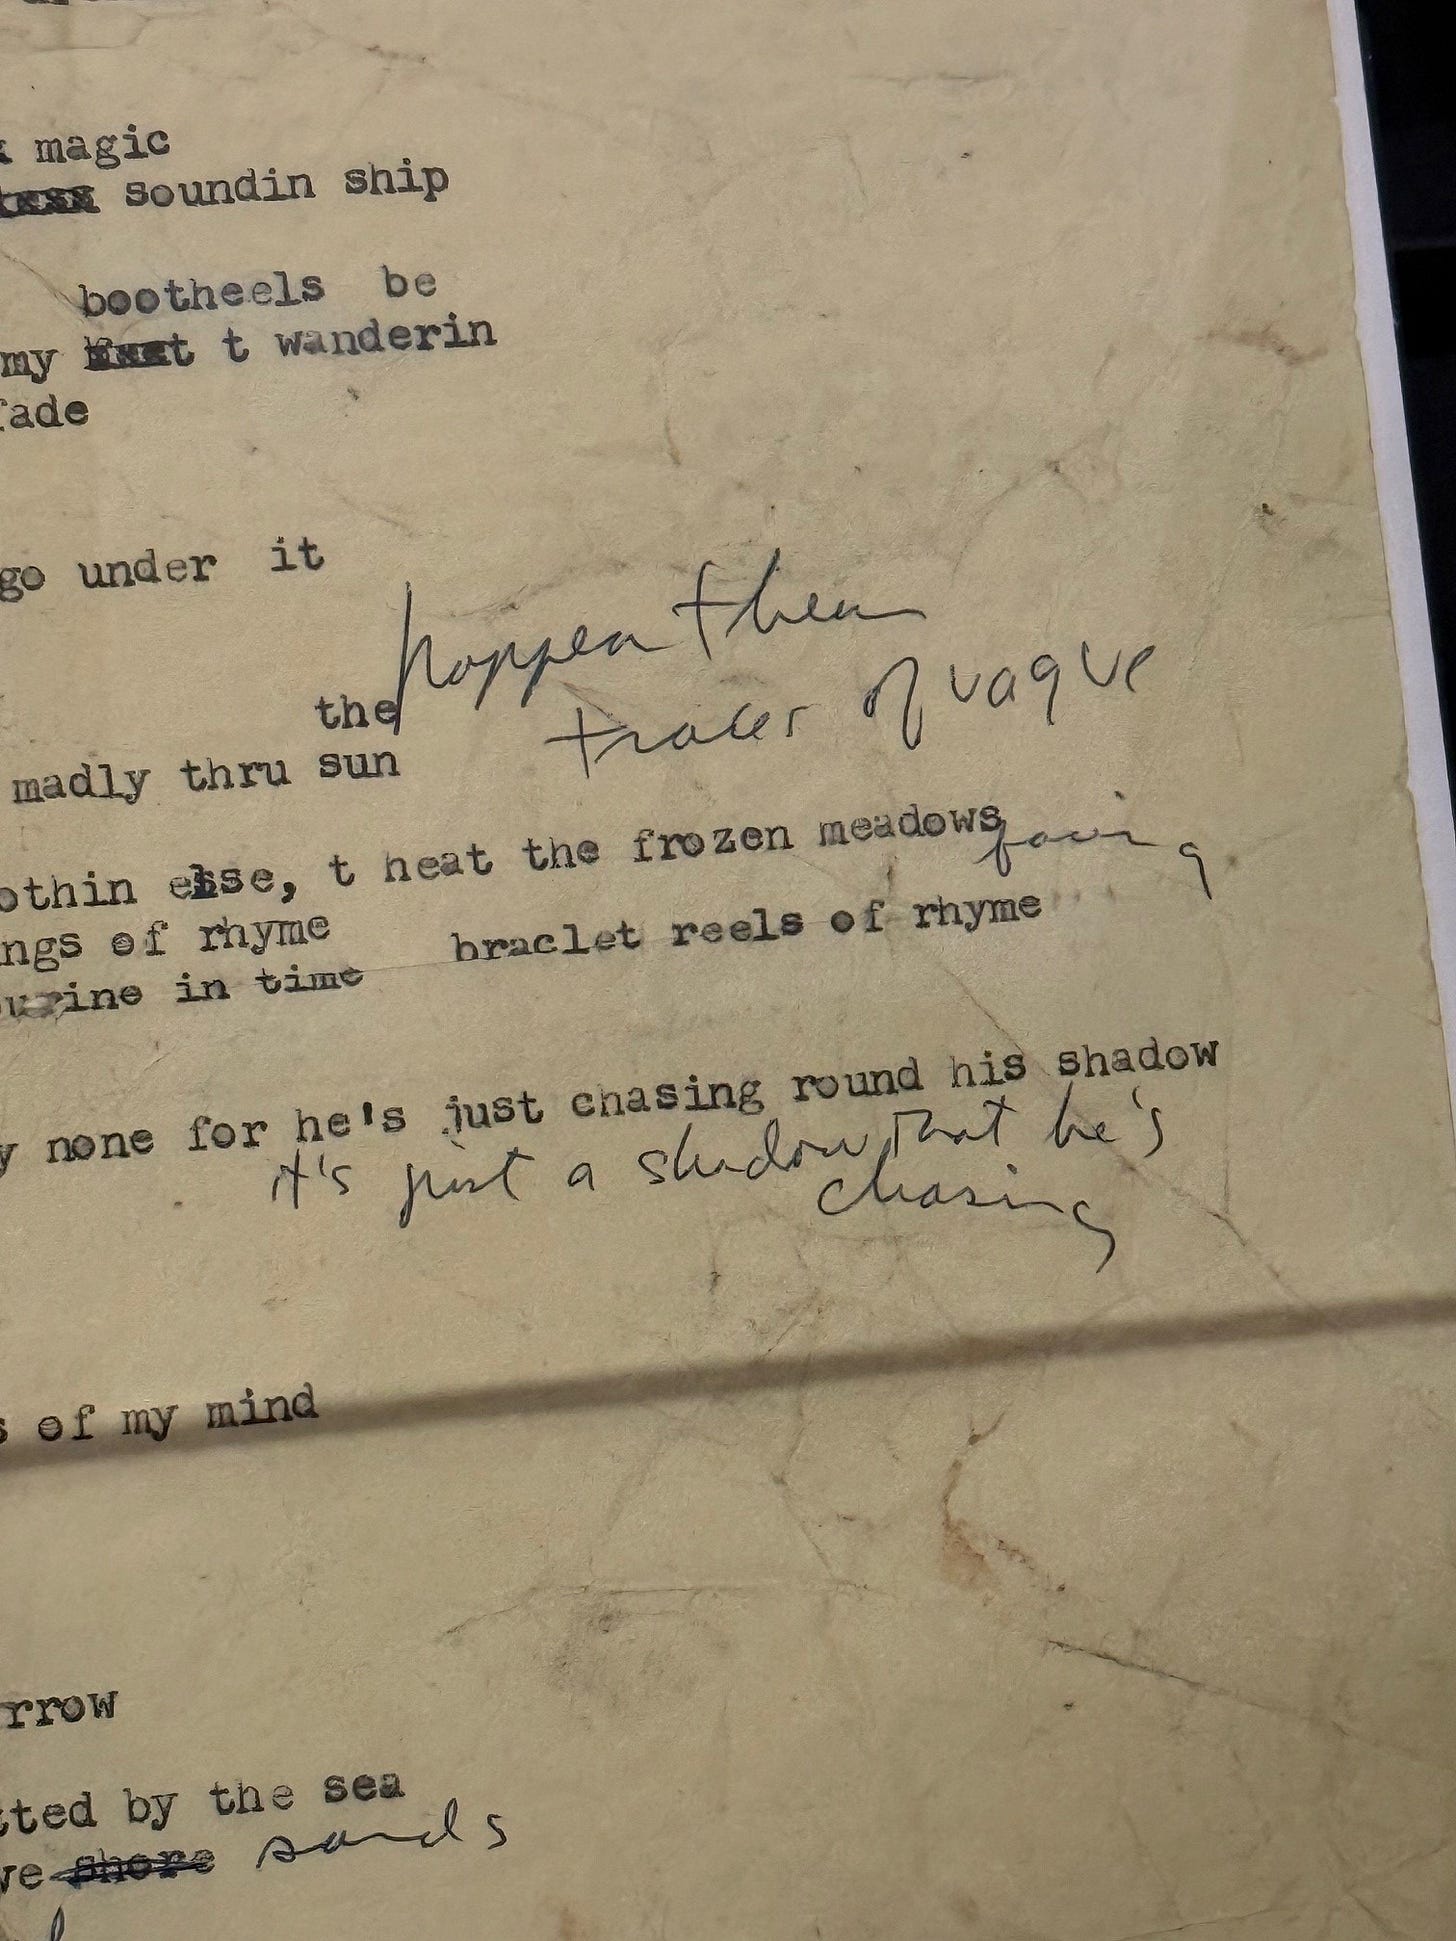 magic
soundin ship
bootheels be
my t wanderin
fade
go under it
happen then
traces of vague
the
madly thru sun
othin else, t heat the frozen meadows
ngs of rhyme
braclet reels of rhyme
urine in time
y none for he's just chasing round his shadow
it's just a shadow that he's
chasing
s of my mind
rrow
tted by the sea
ve shore sands